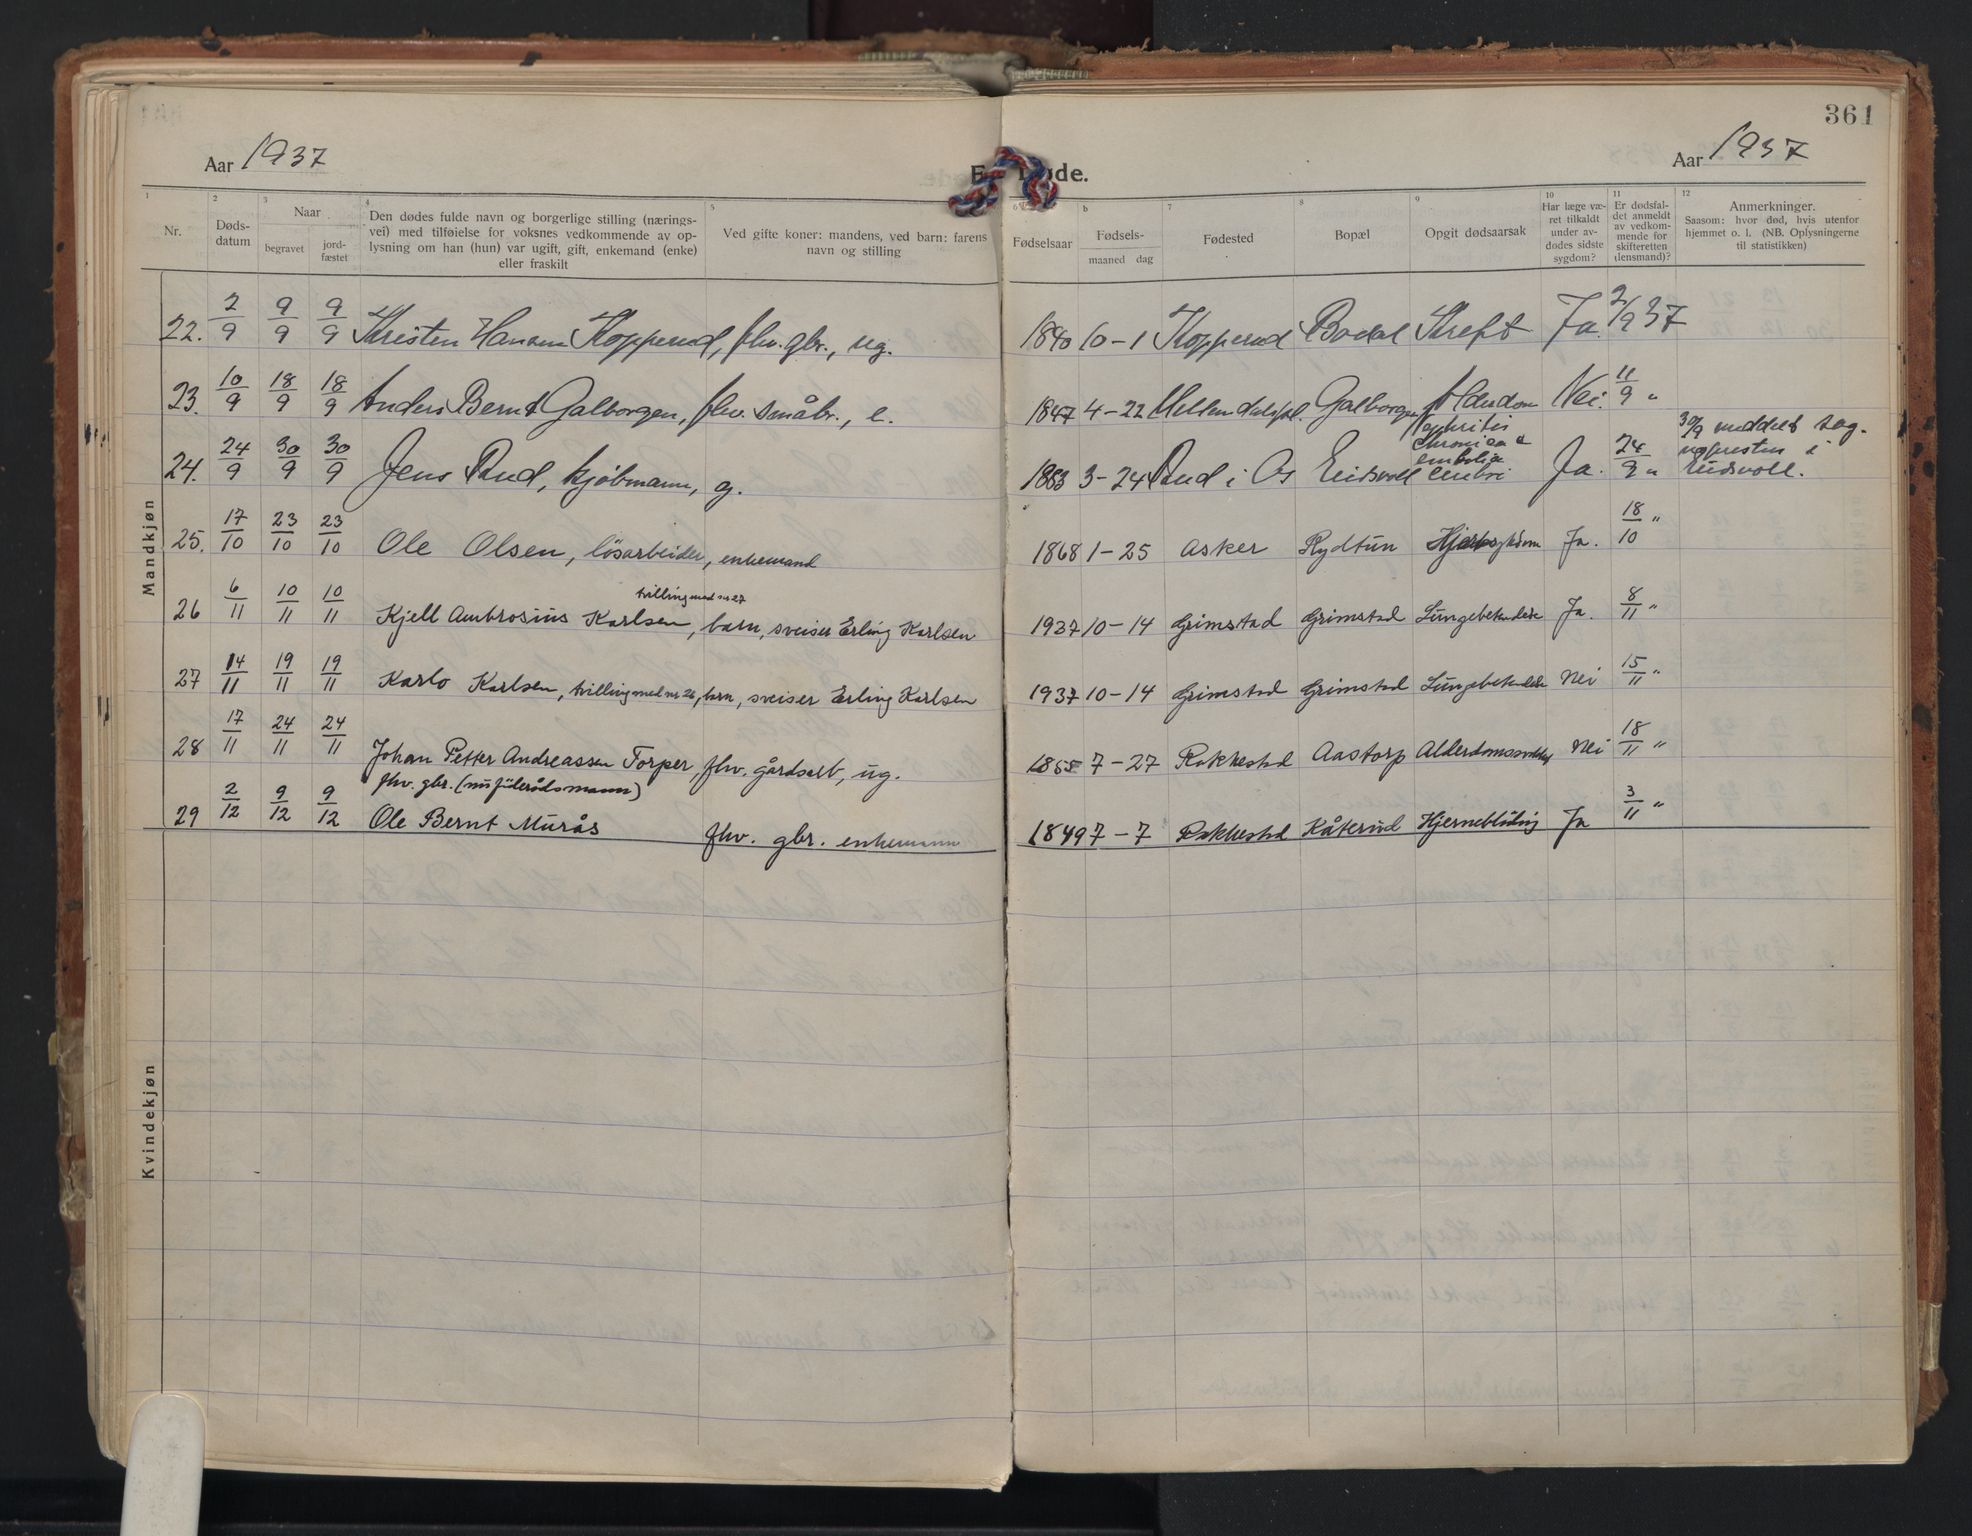 361
Aar 1937
Aar 1937
Døde.
1 Nr.
2 Døds-datum
3 Naar begravet jord-fæstet
4 Den dødes fulde navn og borgerlige stilling (nærings-vei) med tilføielse for voksnes vedkommende av op-lysning om han (hun) var ugift, gift, enkemand (enke) eller fraskilt
5 Ved gifte koner: mandens, ved barn: farens navn og stilling
6 Fødselsaar
b Fødsels-maaned dag
7 Fødested
8 Bopæl
9 Opgit dødsaarsak
10 Har læge væ-ret tilkaldt under av-dødes sidste sygdom?
11 Er dødsfal-det anmeldt av vedkom-mende for skifteretten (lensmand)?
12 Anmerkninger. Saasom: hvor død, hvis utenfor hjemmet o. l. (NB. Oplysningerne til statistikken)
Mandkjøn
22. 2/9 9/9 9/9 Kristen Hansen Kopperud, fhv. gbr., ug. 1840 10-1 Kopperud Bodal Kreft Ja. 2/9 37
23. 10/9 18/9 18/9 Anders Bernt Galborgen, fhv. småbr., e. 1847 4-22 Galborgen Alderdom Nei. 11/9 "
24. 24/9 30/9 30/9 Jens Rud, kjøbmann, g. 1883 3-24 Rud i Os Eidsvoll Nephritis chronica & embolia cerebri Ja. 24/9 " 30/9 meddelt sog-nepresten i Eidsvoll.
25. 17/10 23/10 23/10 Ole Olsen, løsarbeider, enkemand 1868 1-25 Asker Rydtun Hjertesykdom Ja. 18/10 "
tvilling med nr 27
26 6/11 10/11 10/11 Kjell Ambrosius Karlsen, barn, sveiser Erling Karlsen 1937 10-14 Grimstad Grimstad Lungebetendelse Ja. 8/11 "
27 14/11 19/11 19/11 Karlo Karlsen, tvilling med nr. 26, barn, sveiser Erling Karlsen 1937 10-14 Grimstad Grimstad Lungebetendelse Nei 15/11 "
28 17/11 24/11 24/11 Johan Petter Andreassen Torper, fhv. gårdsarb, ug. 1855 7-27 Rakkestad Aastorp Nei 18/11 "
fhv. gbr. (nu føderådsmann)
29 2/12 9/12 9/12 Ole Bernt Murås fhv. gbr. enkemann 1849 7-7 Rakkestad Kåterud Hjerneblødning Ja 3/11 "
Kvindekjøn